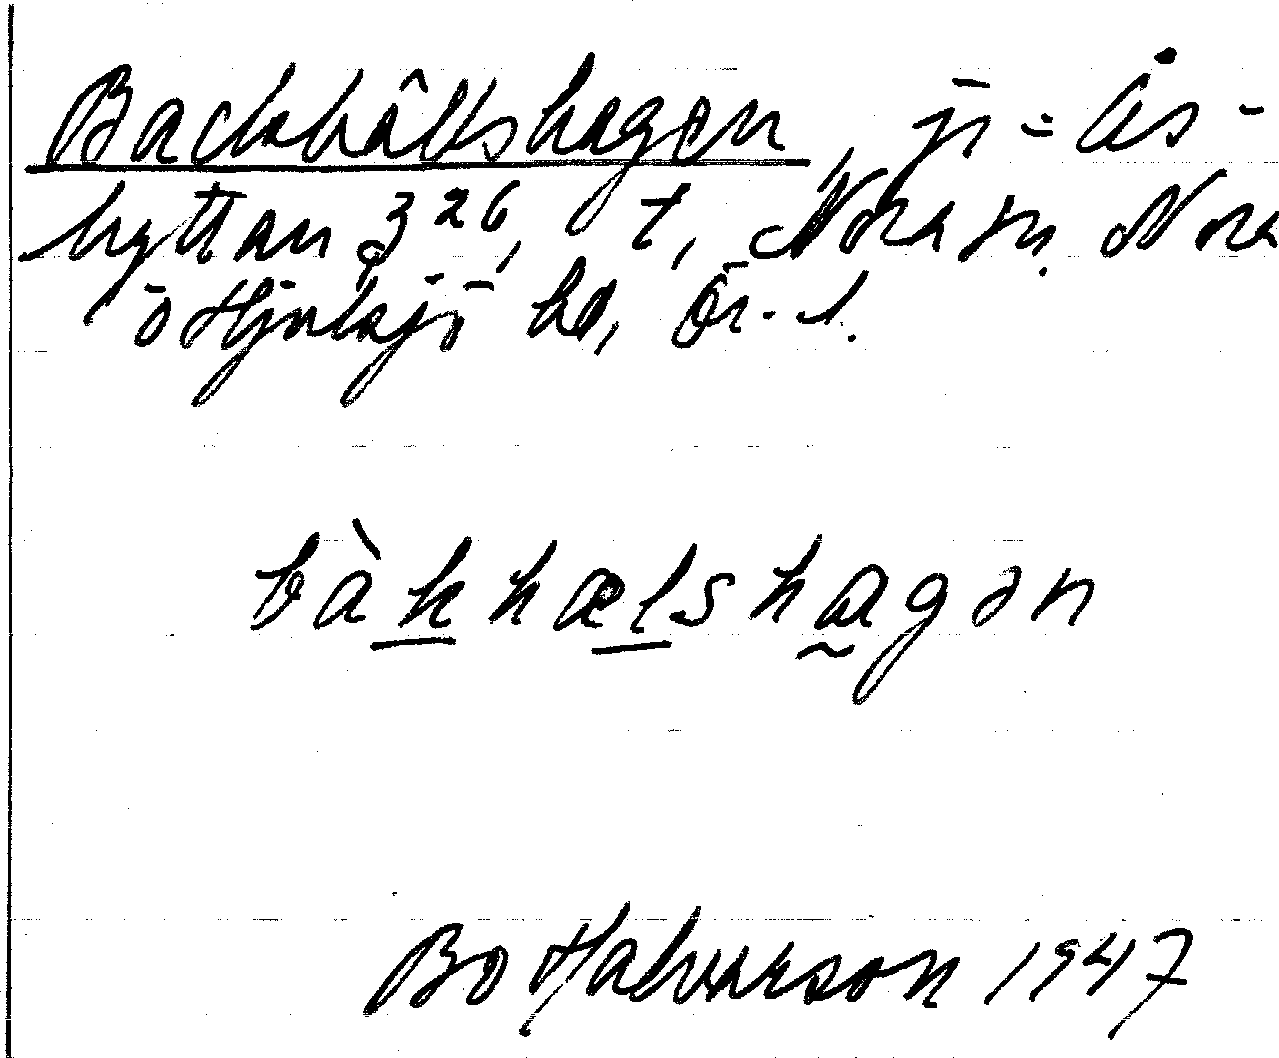 Backhållshagen, jr = Ås-
hyttan 3 26, t, Nora sn. Nora
o Hjulsjö hd, Ör. l.
bàkhælshagən
Bo Halvarson 1947